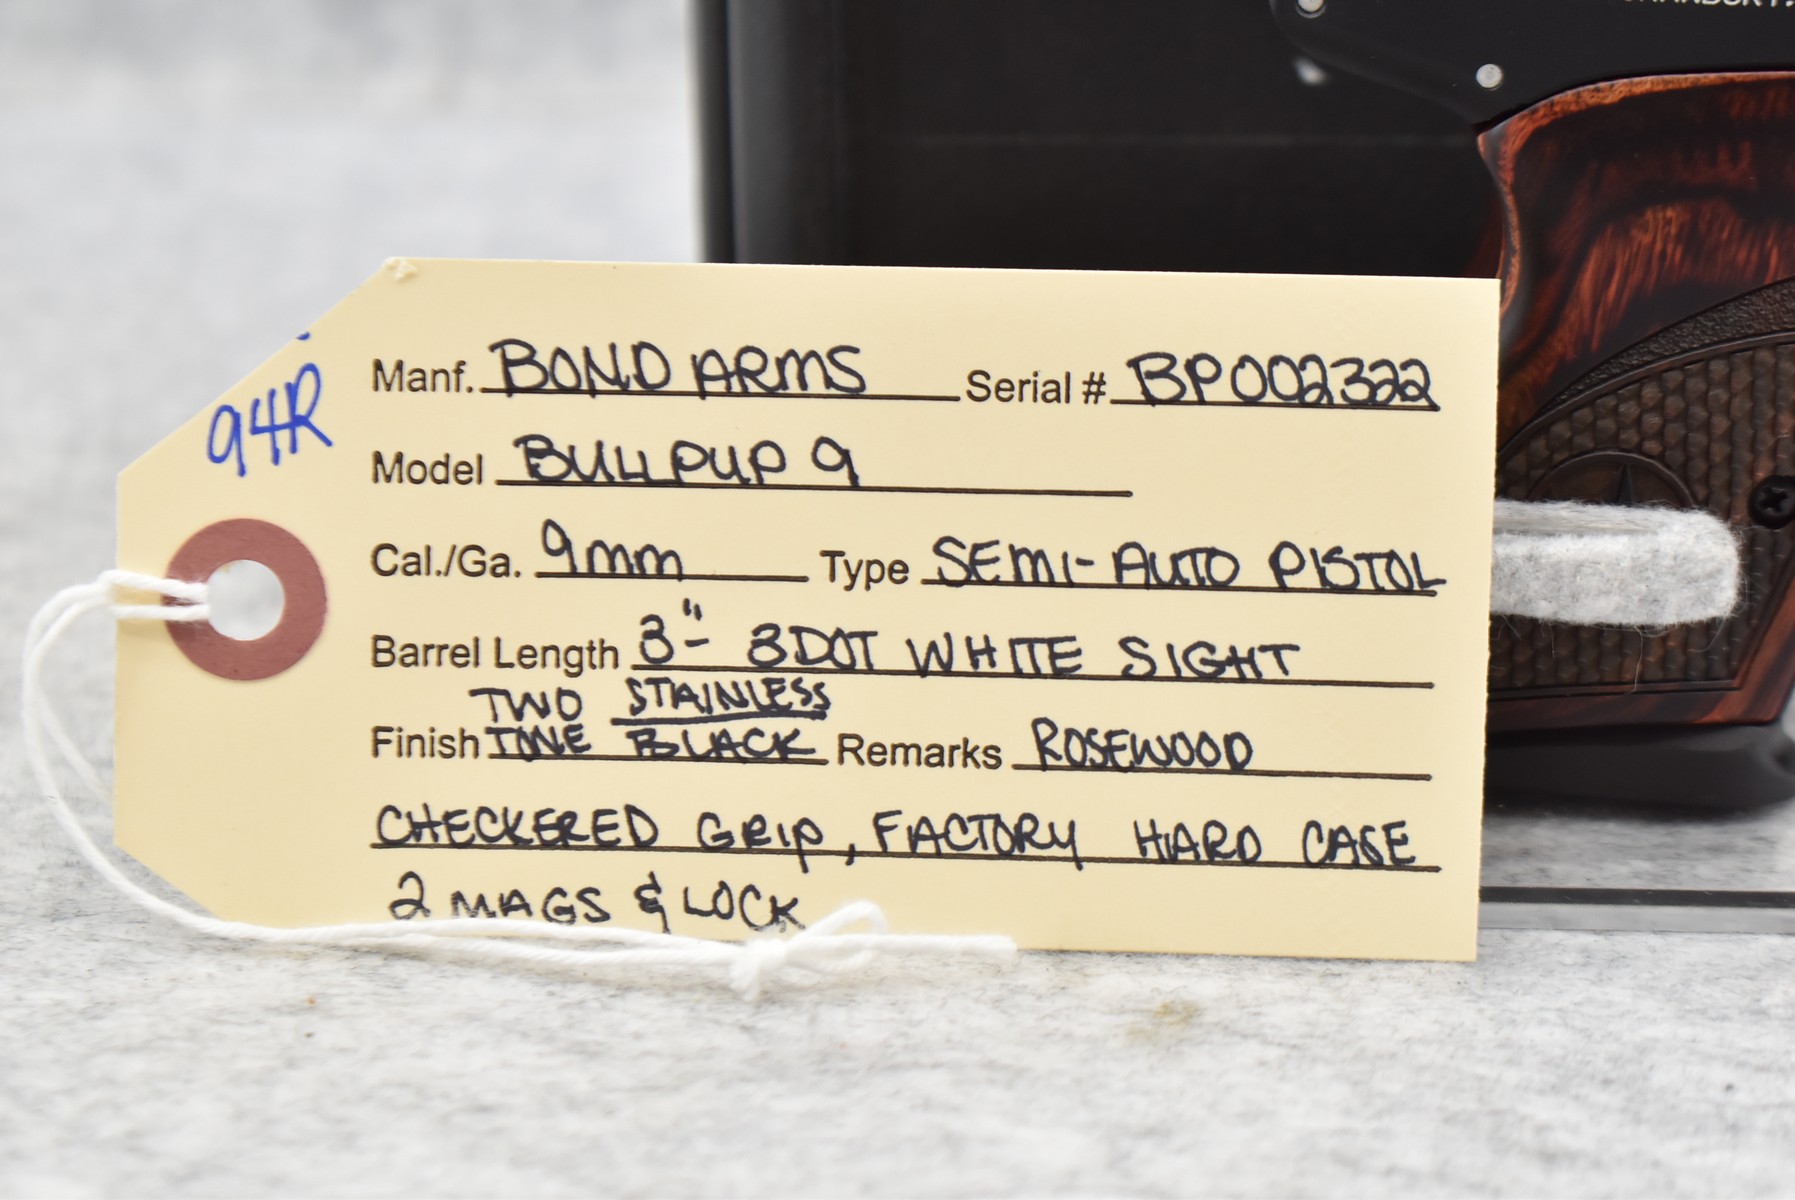 94R
Manf. BOND ARMS Serial # BP002322
Model BULLPUP 9
Cal./Ga. 9mm Type SEMI-AUTO PISTOL
Barrel Length 3"- 3DOT WHITE SIGHT
TWO STAINLESS
Finish TONE BLACK Remarks ROSEWOOD
CHECKERED GRIP, FACTORY HARD CASE
2 MAGS & LOCK